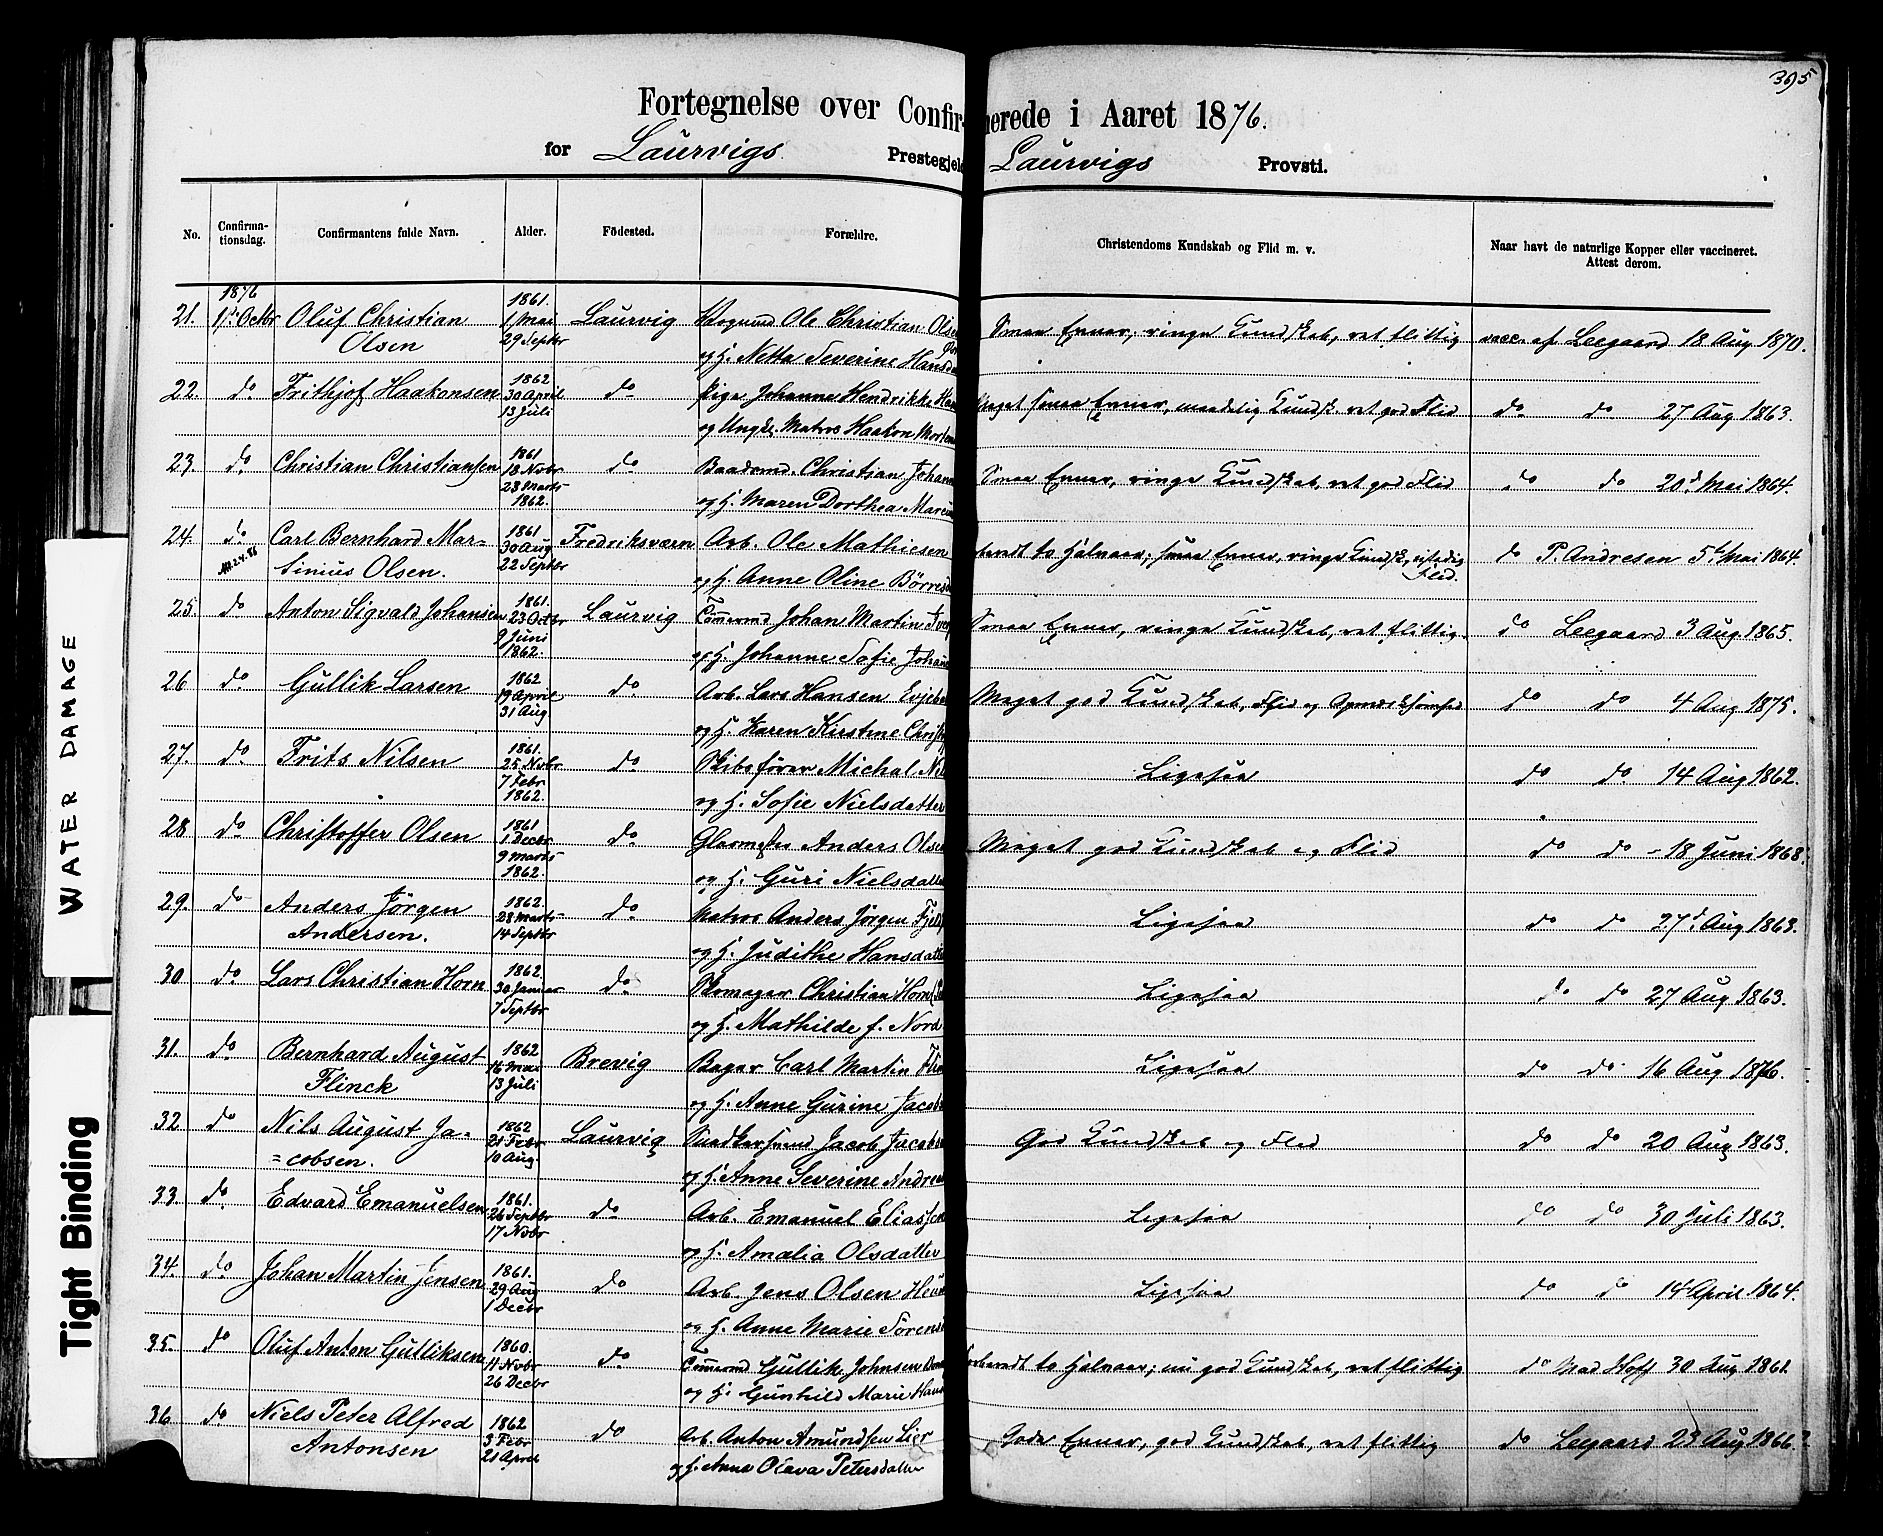 395
Fortegnelse over Confir- merede i Aaret 1876.
for Laurvigs Prestegjeld Laurvigs Provsti.
No. Confirma-tionsdag. Confirmantens fulde Navn. Alder. Födested. Forældre. Christendoms Kundskab og Flid m. v. Naar havt de naturlige Kopper eller vaccineret. Attest derom.
1876 1861.
21. 1ste Octbr Oluf Christian 1 Mai Laurvig Ole Christian Olsen Smaa Evner, ringe Kundskab, ret flittig vacc. af Leegaard 18 Aug 1870.
Olsen 29 Septbr og H. Netta Severine Hansd
22. do Frithjof Haakonsen 1862 30 April 13 Juli do Pige Johanne Hendrikke Han Meget smaa Evner, maadelig Kundsk. ret god Flid do do 27 Aug 1863.
og Ungk. Matros Haakon Morten
23. do Christian Christiansen 1861 18 Novbr 23 Marts 1862. do Baadsmd. Christian Johann Smaa Evner, ringe Kundskab, ret god Flid do do 20d Mai 1864.
og H. Maren Dorthea Marcu
24. do Carl Bernhard Mar- 1861 30 Aug 22 Septbr Fredriksværn Arb. Ole Mathiesen to Halvaar; smaa Evner, ringe Kundsk., Flid. do P. Andresen 5t Mai 1864.
tinius Olsen. og H. Anne Oline Börresd
25. do Anton Sigvald Johansen 1861. 23 Octbr 9 Juni 1862. Laurvig Tömmermd Johan Martin Iver Smaa Evner, ringe Kundskab, ret flittig. do Leegaard 3 Aug. 1865.
og H. Johanne Sofie Johan
26 do Gullik Larsen 1862 19 April 31 Aug do Arb. Lars Hansen Evje Meget god Kundskab, Flid og Opmærksomhed do do 4 Aug 1875.
og H. Karen Kirstine Christ
27. do Frits Nilsen 1861. 25 Novbr 7 Febr 1862. do Skibsförer Michal Nil Ligesaa do do 14 Aug 1862.
og H. Sofie Nielsdatter
28 do Christoffer Olsen 1861 1 Decbr 9 Marts 1862. do Glarmester Anders Olsen Meget god Kundskab og Flid do do - 18 Juni 1868.
og H. Guri Nielsdatter
29. do Anders Jörgen 1862. 28 Marts 14 Septbr do Matros Anders Jörgen Fjeld Ligesaa do do 27d Aug 1863.
Andersen. og H. Judithe Hansdatte
30 do Lars Christian Horn 1862. 30 Januar 7 Septbr do Skomager Christian Horn Ligesaa do do 27 Aug 1863.
og H. Mathilde f. Nord
31. do Bernhard August 1862 16 Mai 13 Juli Brevig Bager Carl Martin Flin Ligesaa do do. 16 Aug 1876.
Flinck og H. Anne Gurine Jacobs
32 do Nils August Ja- 1862 21 Febr 10 Aug. Laurvig Jacob Jacobse God Kundskab og Flid do do 20 Aug 1863.
=cobsen. og H. Anne Severine Andrea
33. do Edvard Emanuelsen 1861. 26 Septbr 17 Novbr do Arb. Emanuel Eliassen Ligesaa do do 30 Juli 1863.
og H. Amalia Olsdatter
34. do Johan Martin Jensen 1861. 29 Aug 1 Decbr do Arb. Jens Olsen Ligesaa do do 14 April 1864.
og H. Anne Marie Sörens
35. do Oluf Anton Gulliksen 1860. 11 Novbr 26 Decbr do Tömmermd Gullik Johnsen to Halvaar; nu god Kundskab, ret flittig do Mad Hoff 30 Aug 1861.
og H. Gunhild Marie Hans
36 do Niels Peter Alfred 1862 3 Febr 21 April do Arb. Anton Amundsen Lier Gode Evner, god Kundskab, ret flittig do Leegaard 23 Aug 1866.
Antonsen og H. Anne Olava Petersdatter
WATER DAMAGE
Tight Binding